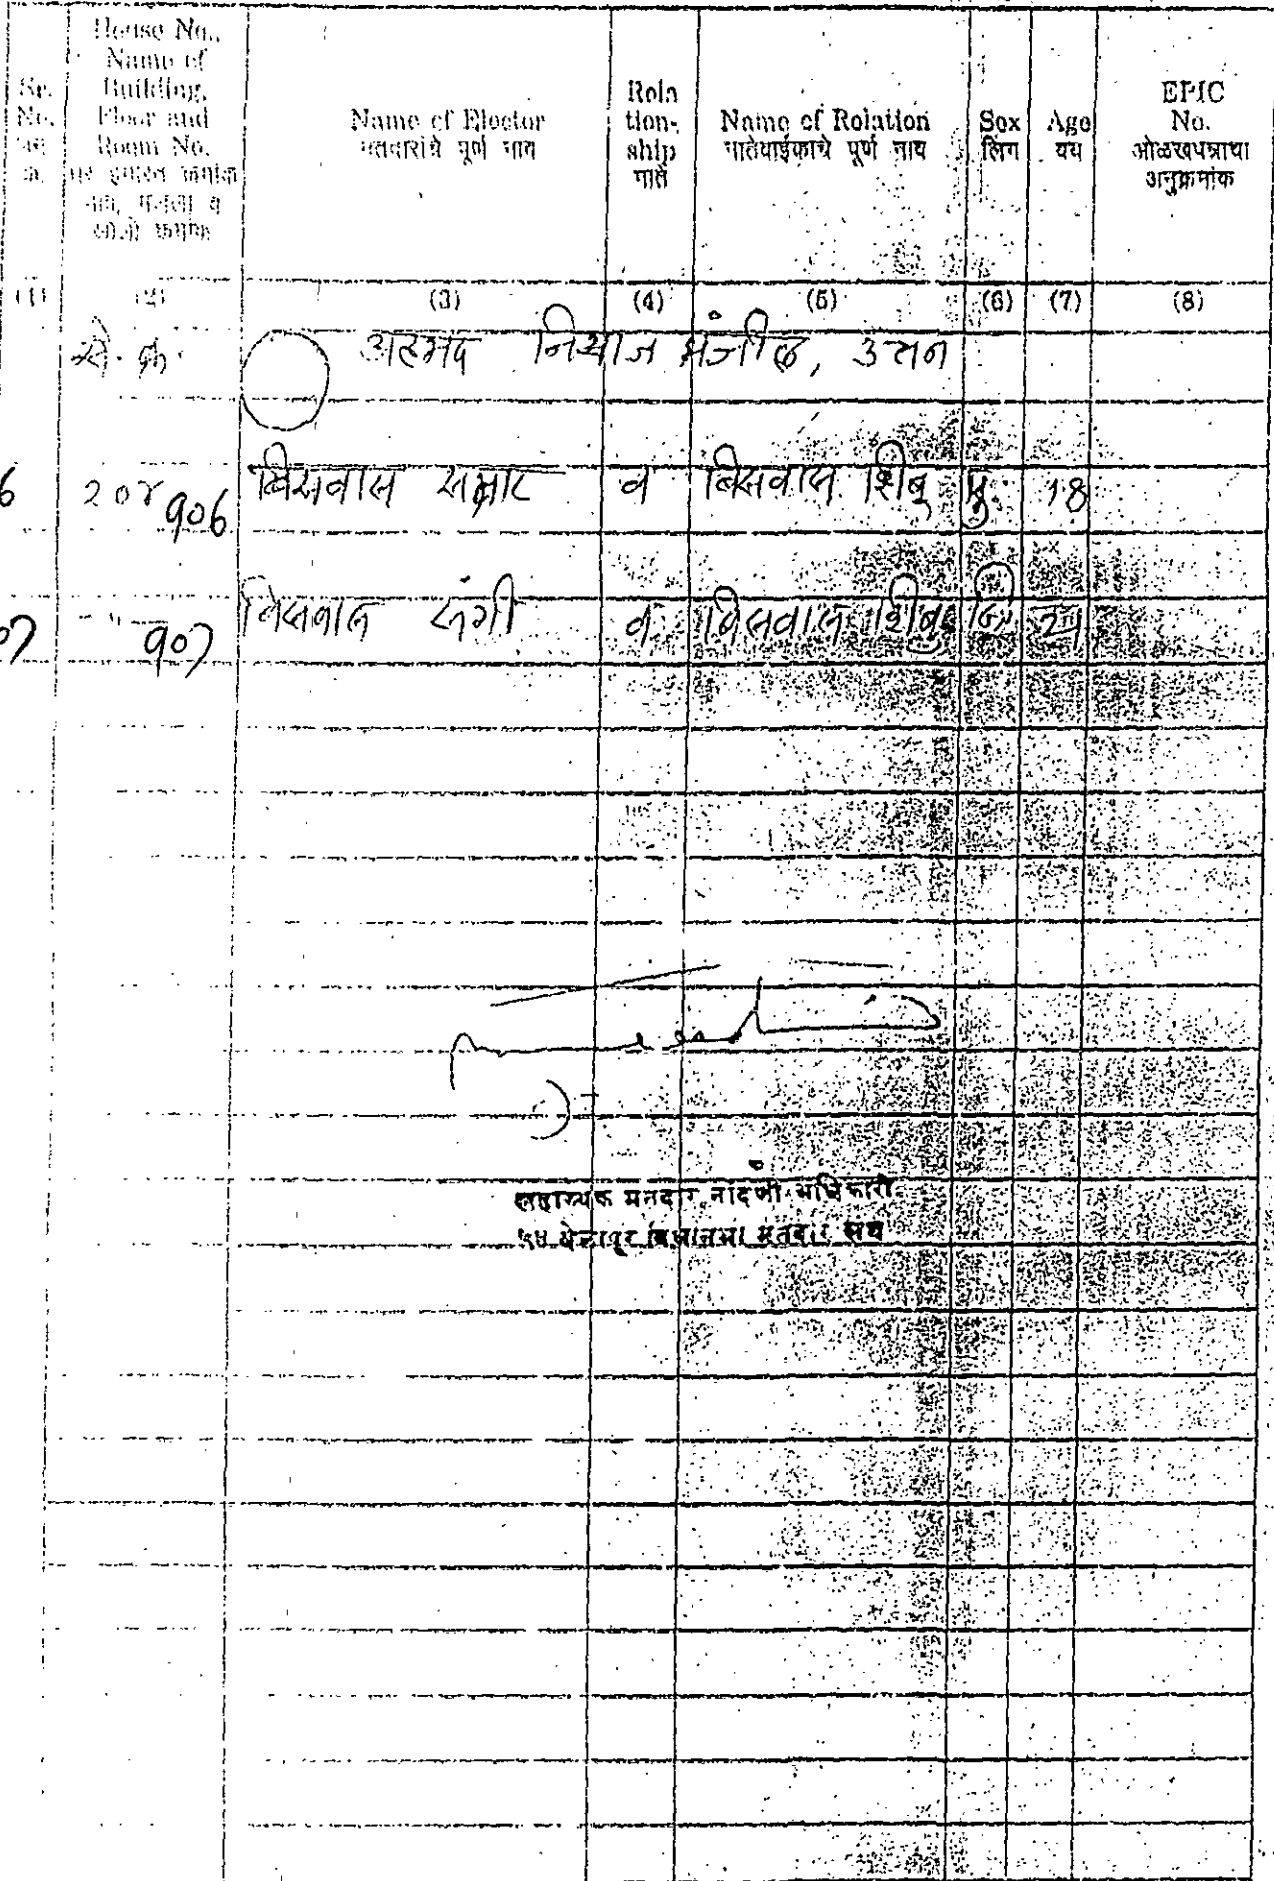 Sr. No.
House No., Name of Building, Floor and Room No.
Name of Elector
मतदारांचे पूर्ण नाव
Relation-ship
नाते
Name of Relation
नातेवाईकाचे पूर्ण नाव
Sex
लिंग
Age
वय
EPIC No.
ओळखपत्राचा अनुक्रमांक
(1) (2) (3) (4) (5) (6) (7) (8)
से. क्र. अहमद नियाज मंजील, उत्तन
6 204 906 बिसवास सम्राट व बिसवास शिबू पु 18
07 " 907 बिसवास संगी व बिसवास शिबु
सहाय्यक मतदार नोंदणी अधिकारी
बेलापूर विधानसभा मतदार संघ